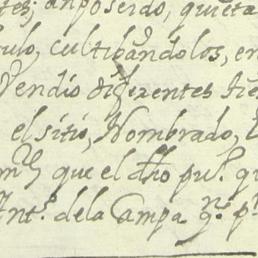 an poseido, quieta
culo, cultibandolos, en
Vendio diferentes tie
el sitio, Nombrado, L
que el dho pu.º q
Ant.º dela Campa q.º p